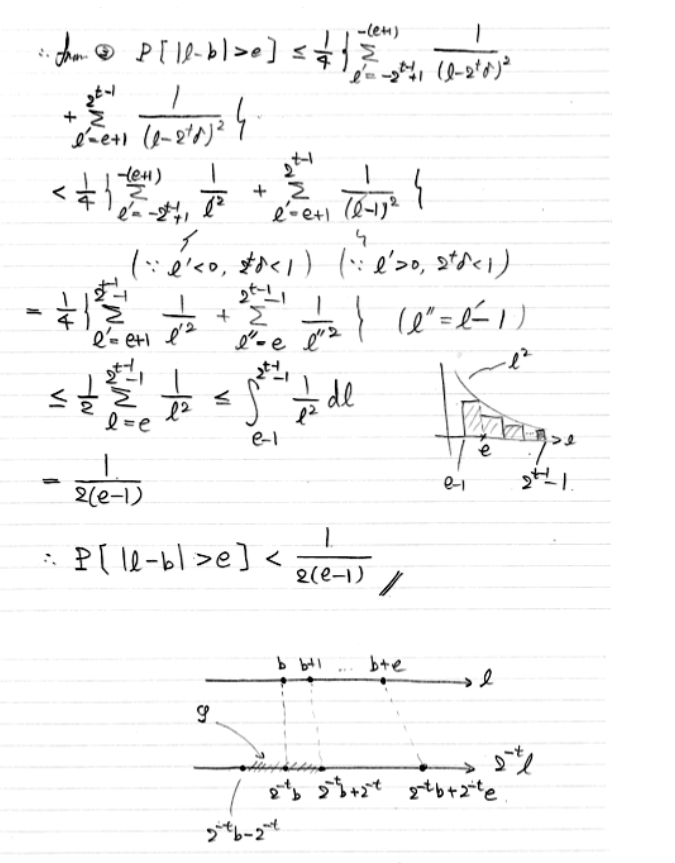 ∴ from ② P[|l-b|>e] ≤ 1/4 { Σ_{l'=-2^{t-1}+1}^{-(e+1)} 1/(l-2^tδ)^2
+ Σ_{l'=e+1}^{2^{t-1}} 1/(l-2^tδ)^2 }
< 1/4 { Σ_{l'=-2^{t-1}+1}^{-(e+1)} 1/l'^2 + Σ_{l'=e+1}^{2^{t-1}} 1/(l'-1)^2 }
(∵ l'<0, 2^tδ<1) (∵ l'>0, 2^tδ<1)
= 1/4 { Σ_{l'=e+1}^{2^{t-1}-1} 1/l'^2 + Σ_{l''=e}^{2^{t-1}-1} 1/l''^2 } (l''=l'-1)
≤ 1/2 Σ_{l=e}^{2^{t-1}-1} 1/l^2 ≤ ∫_{e-1}^{2^{t-1}-1} 1/l^2 dl
l^2
l
e
e-1 2^{t-1}-1.
= 1/(2(e-1))
∴ P[|l-b|>e] < 1/(2(e-1)) //
b b+1 ... b+e
l
φ
2^{-t}l
2^{-t}b 2^{-t}b+2^{-t} 2^{-t}b+2^{-t}e
2^{-t}b-2^{-t}